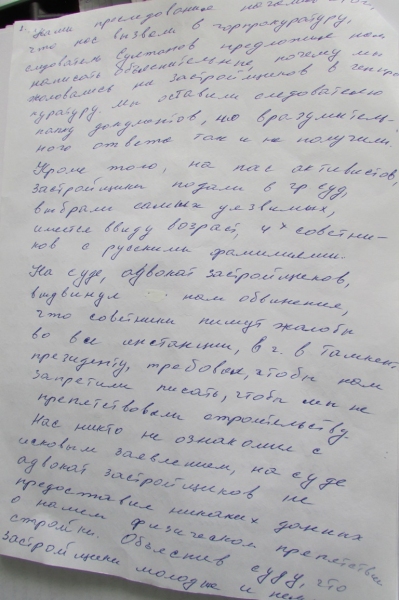 Наши преследования начались с того,
что нас вызвали в горпрокуратуру,
следователь Султанов предложил нам
написать объяснительные, почему мы
жаловались на застройщиков в генпро-
куратуру. Мы оставили следователю
папку документов, но вразумитель-
ного ответа так и не получили.
Кроме того, на нас активистов,
застройщики подали в гр суд,
выбрали самых уязвимых,
имеется ввиду возраст, 4х советни-
ков с русскими фамилиями.
На суде, адвокат застройщиков,
выдвинул нам обвинение,
что советники пишут жалобы
во все инстанции, в г. в Ташкент
президенту, требовал, чтобы нам
запретили писать, чтобы мы не
препятствовали строительству.
Нас никто не ознакомил с
исковым заявлением, на суде
адвокат застройщиков не
предоставил никаких данных
о нашем физическом препятствии
стройки. Объяснив суду, что
застройщики молодые и